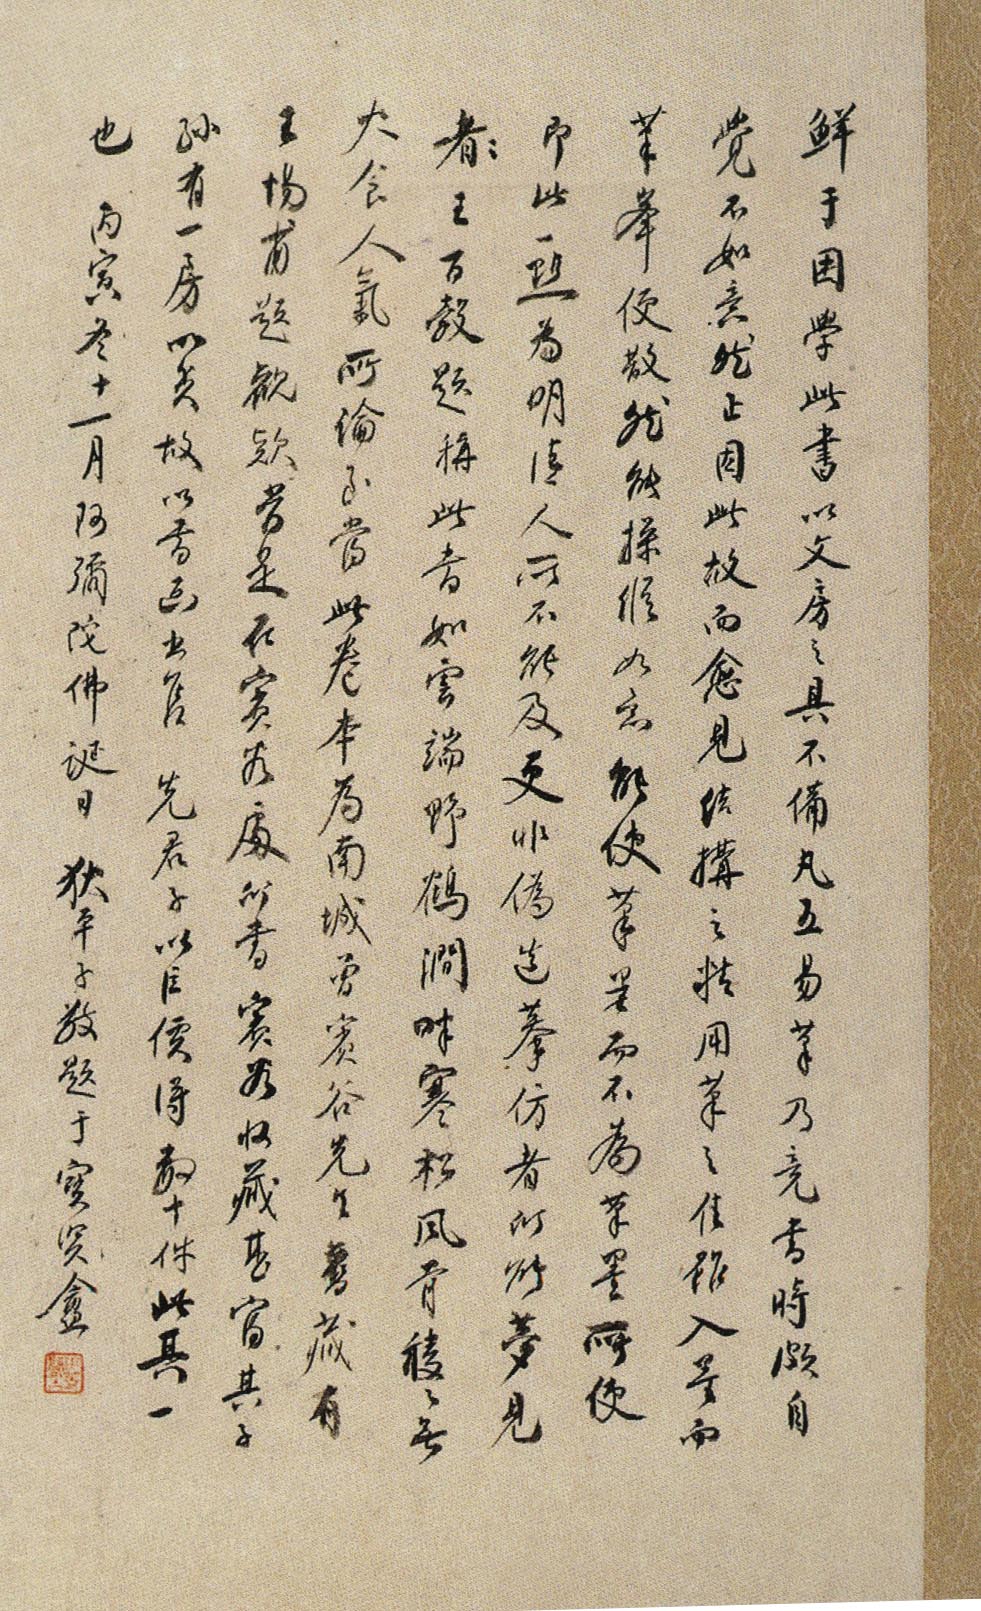 鮮于困學此書以文房之具不備凡五易筆乃竟書時頗自
覺不如意然正因此故而愈見結搆之精用筆之佳雖入墨而
筆峯便散然能操縱如意能使筆墨而不為筆墨所使
即此一點為明清人所不能及更非偽造摹仿者所能夢見
者王百穀題稱此書如雲端野鶴澗畔寒松風骨稜々無
火食人氣所論至當此卷本為南城曾賓谷先生舊藏有
王惕甫題觀款當是在賓谷處所書賓谷收藏甚富其子
孫有一房以貧故以書畫出售 先君子以巨價得數十件此其一
也 丙寅冬十一月阿彌陀佛誕日 狄平子敬題于寶賢盦